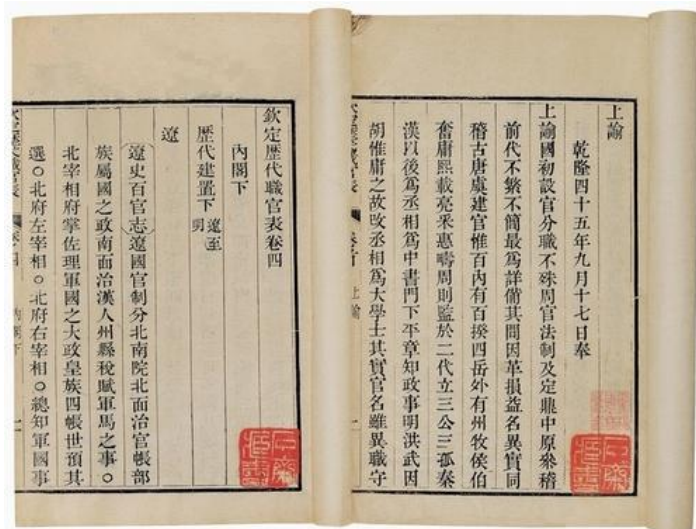 上諭
乾隆四十五年九月十七日奉
上諭國初設官分職不殊周官法制及定鼎中原參稽
前代不繁不簡最為詳備其間因革損益名異實同
稽古唐虞建官惟百內有百揆四岳外有州牧侯伯
奮庸熙載亮采惠疇周則監於二代立三公三孤秦
漢以後為丞相為中書門下平章知政事明洪武因
胡惟庸之故改丞相為大學士其實官名雖異職守
卷首
上諭
一
欽定歷代職官表卷四
內閣下
歷代建置下遼至明
遼
遼史百官志遼國官制分北南院北面治宮帳部
族屬國之政南面治漢人州縣稅賦軍馬之事○
北宰相府掌佐理軍國之大政皇族四帳世預其
選○北府左宰相○北府右宰相○總知軍國事
職官表
卷四
內閣下
一